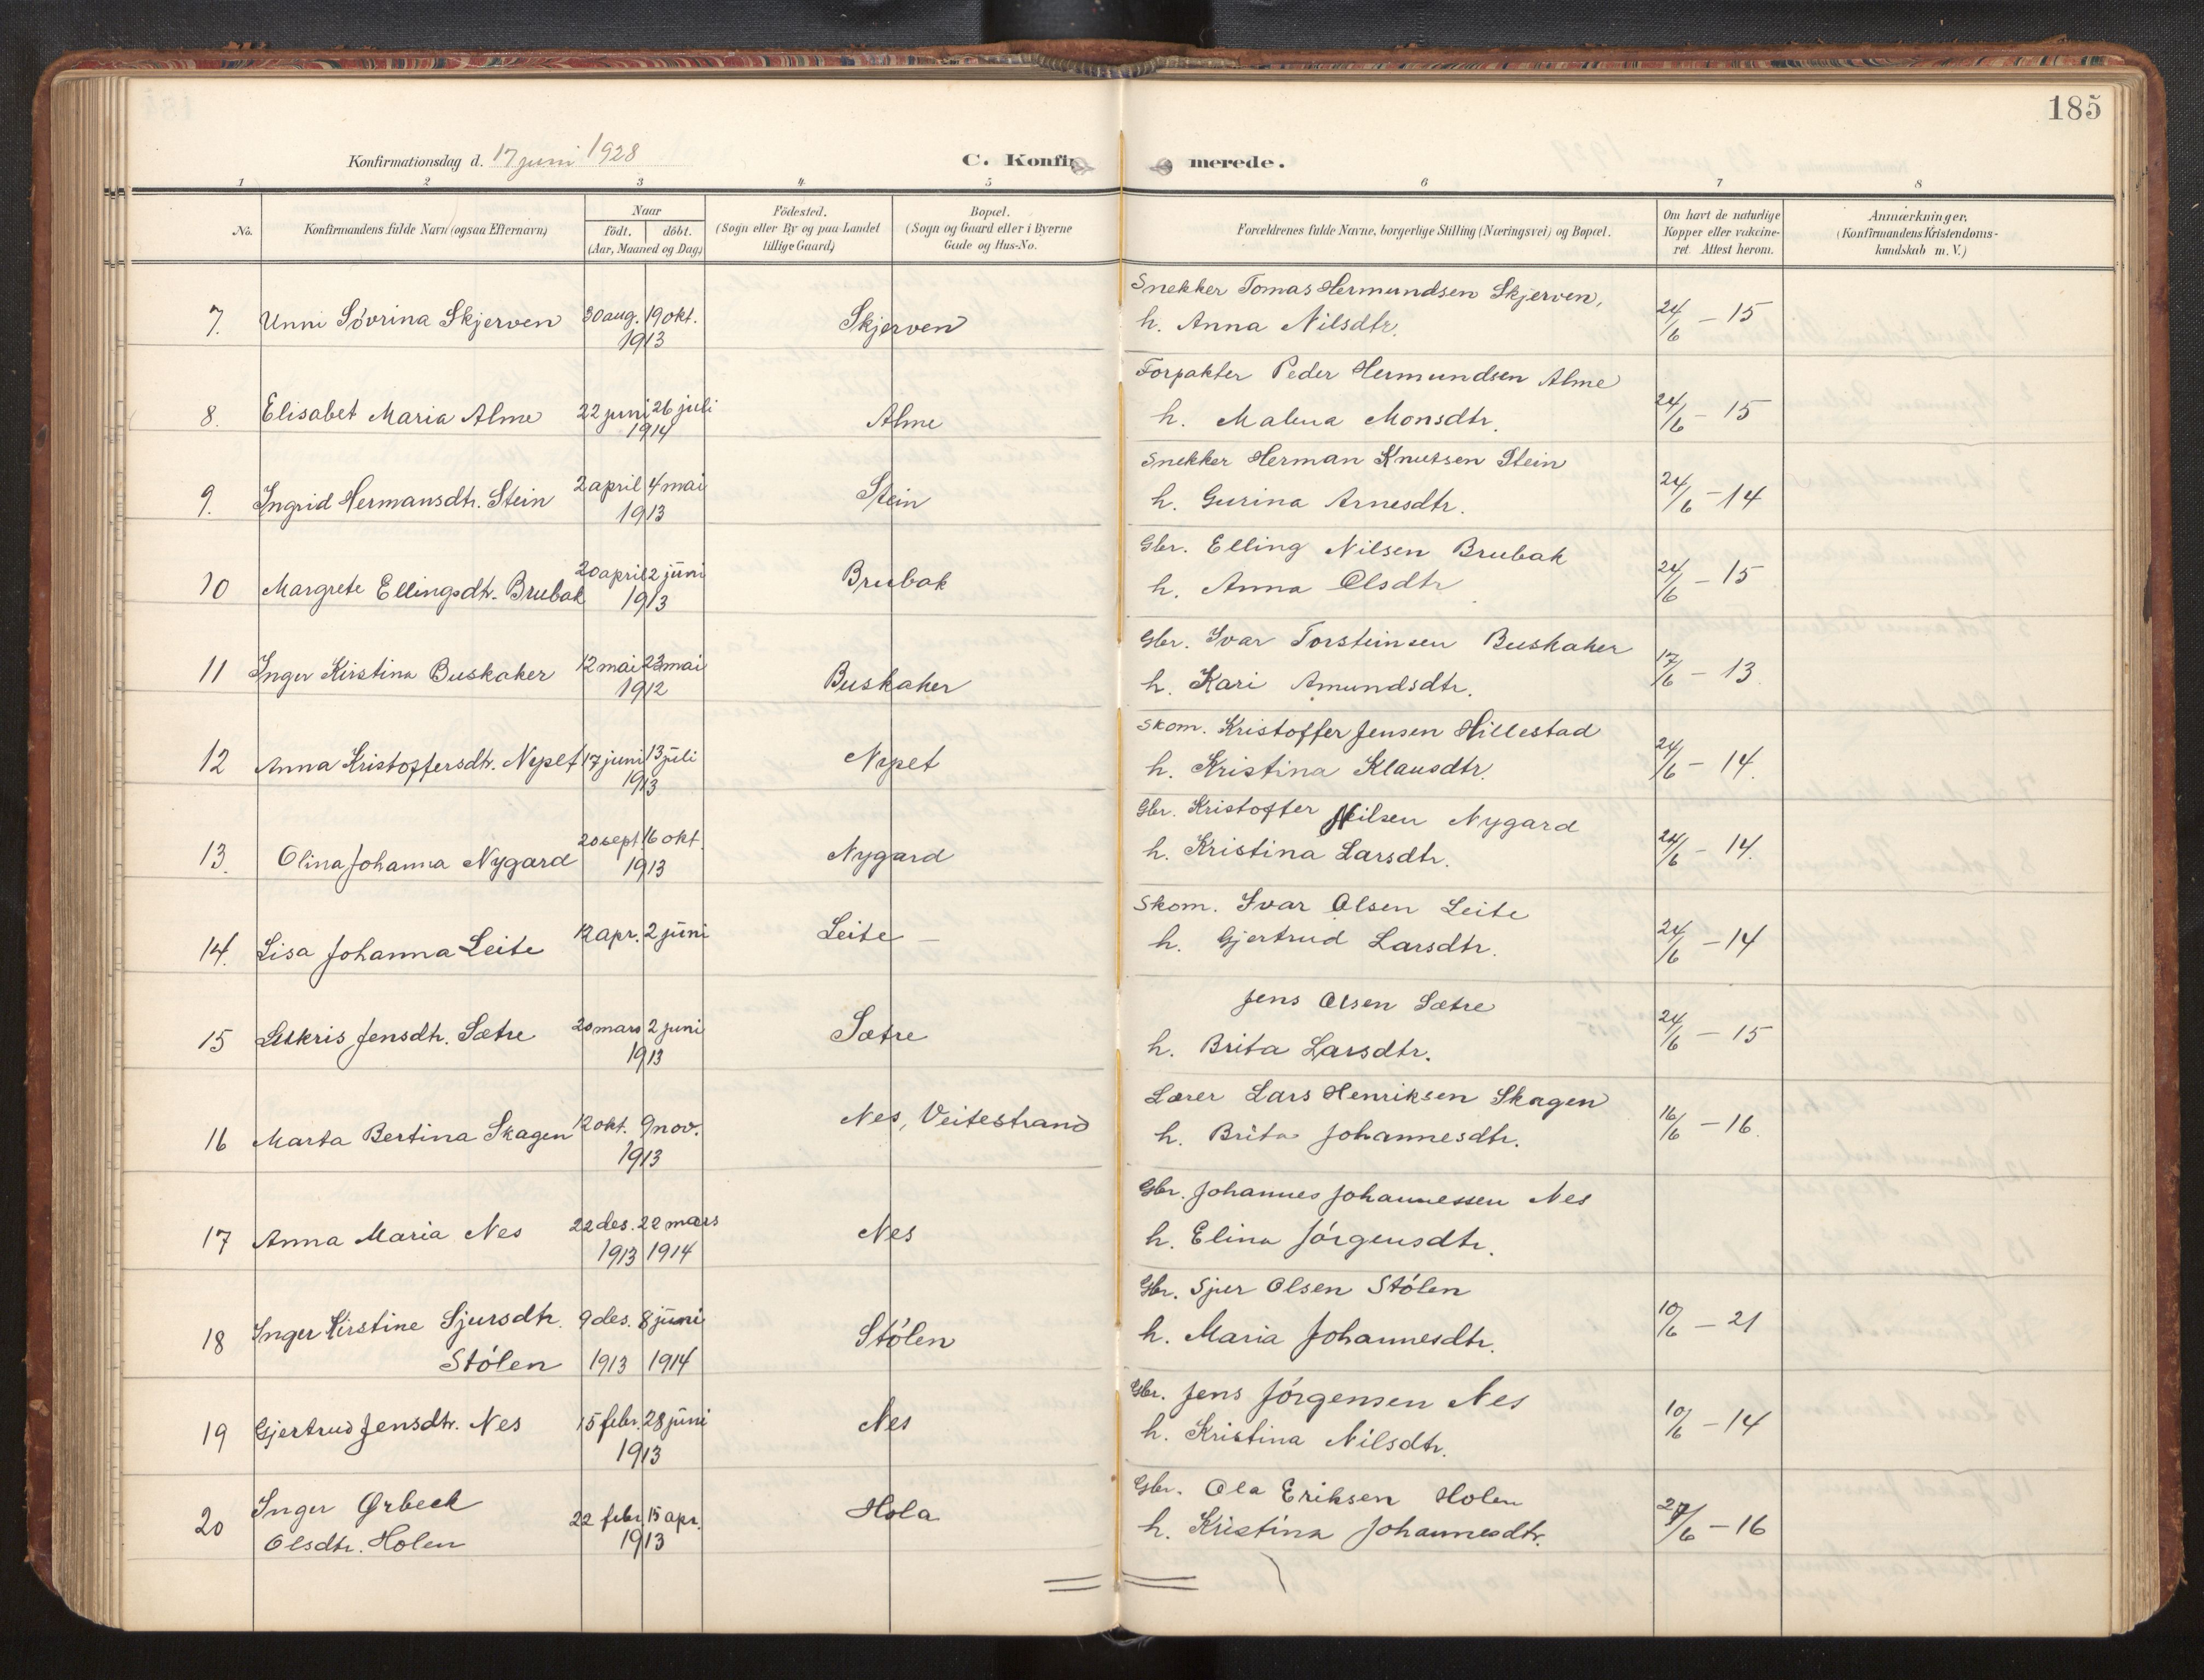 185
Konfirmationsdag d. 17 juni 1928
C. Konfirmerede.
1 2 3 4 5 6 7 8
No.
Konfirmandens fulde Navn (ogsaa Efternavn)
Naar
födt. döbt.
(Aar, Maaned og Dag)
Födested.
(Sogn eller By og paa Landet
tillige Gaard)
Bopæl.
(Sogn og Gaard eller i Byerne
Gade og Hus-No.
Forældrenes fulde Navne, borgerlige Stilling (Næringsvei) og Bopæl.
Om havt de naturlige
Kopper eller vakcine-
ret. Attest herom.
Anmærkninger.
(Konfirmandens Kristendoms-
kundskab m. V.)
7. Unni Sövrina Skjerven 30 aug. 19 okt. 1913 Skjerven
Snekker Tomas Hermundsen Skjerven,
h. Anna Nilsdtr. 24/6 – 15
8. Elisabet Maria Alme 22 juni 26 juli 1914 Alme
Forpakter Peder Hermundsen Alme
h. Malena Monsdtr. 24/6 – 15
9. Ingrid Hermansdtr. Stein 2 april 4 mai 1913 Stein
Snekker Herman Knutsen Stein
h. Gurina Arnesdtr. 24/6 – 14
10 Margrete Ellingsdtr. Brubak 20 april 2 juni 1913 Brubak
Gbr. Elling Nilsen Brubak
h. Anna Olsdtr 24/6 – 15
11 Inger Kirstina Buskaker 12 mai 23 mai 1912 Buskaker
Gbr. Ivar Torsteinsen Buskaker
h. Kari Amundsdtr. 17/6 – 13
12 Anna Kristoffersdtr. Nypet 17 juni 13 juli 1913 Nypet
Skom. Kristoffer Jensen Hillestad
h. Kristina Klausdtr. 24/6 – 14.
13. Olina Johanna Nygard 20 sept. 16 okt. 1913 Nygard
Gbr. Kristoffer Nilsen Nygard
h. Kristina Larsdtr. 24/6 – 14.
14. Lisa Johanna Leite 12 apr. 2 juni Leite –
Skom. Ivar Olsen Leite
h. Gjertrud Larsdtr. 24/6 – 14
15 Jensdtr. Sætre 20 mars 2 juni 1913 Sætre
Jens Olsen Sætre
h. Brita Larsdtr. 24/6 – 15
16 Marta Bertina Skagen 12 okt. 9 nov. 1913 Nes, Veitestrand
Lærer Lars Henriksen Skagen
h. Brita Johannesdtr. 16/6 – 16.
17 Anna Maria Nes 22 des. 22 mars 1913 1914 Nes
Gbr. Johannes Johannessen Nes
h. Elina Jörgensdtr.
18 Inger Kirstine Sjursdtr. 9 des. 8 juni Stölen
Stölen 1913 1914
Gbr. Sjur Olsen Stölen
h. Maria Johannesdtr. 10/6 – 21
19 Gjertrud Jensdtr. Nes 15 febr. 28 juni 1913 Nes
Gbr. Jens Jörgensen Nes
h. Kristina Nilsdtr. 10/6 – 14
20 Inger Ørbeck
Olsdtr. Holen 22 febr 15 apr. 1913 Hola
Gbr. Ola Eriksen Holen
h. Kristina Johannesdtr. /6 – 16